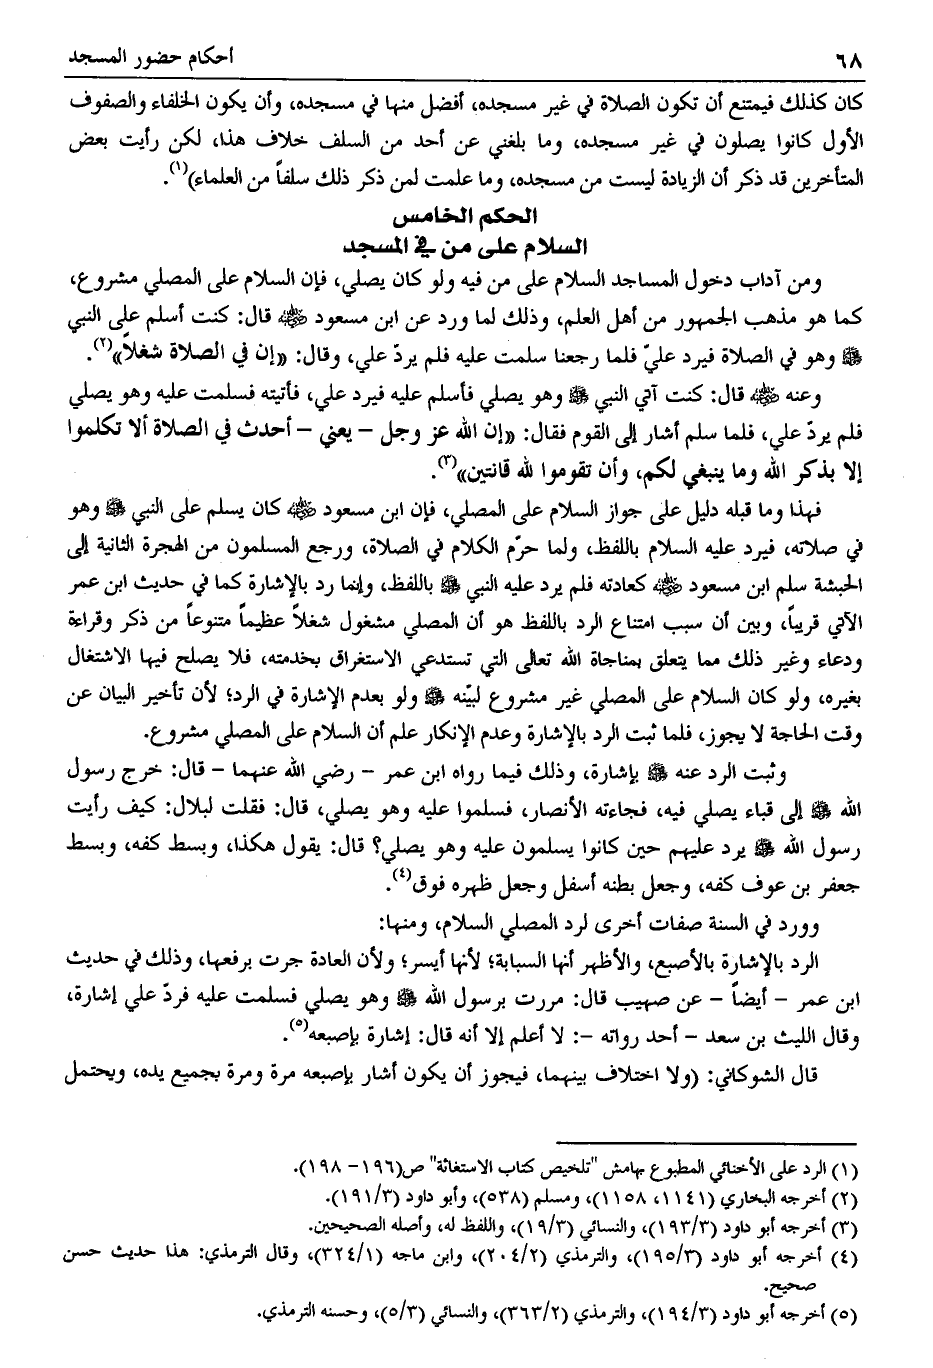 ٦٨
أحكام حضور المسجد
كان كذلك فيمتنع أن تكون الصلاة في غير مسجده، أفضل منها في مسجده، وأن يكون الخلفاء والصفوف
الأول كانوا يصلون في غير مسجده، وما بلغني عن أحد من السلف خلاف هذا، لكن رأيت بعض
المتأخرين قد ذكر أن الزيادة ليست من مسجده، وما علمت لمن ذكر ذلك سلفاً من العلماء)(١).
الحكم الخامس
السلام على من في المسجد
ومن آداب دخول المساجد السلام على من فيه ولو كان يصلي، فإن السلام على المصلي مشروع،
كما هو مذهب الجمهور من أهل العلم، وذلك لما ورد عن ابن مسعود رضي الله عنه قال: كنت أسلم على النبي
ﷺ وهو في الصلاة فيرد عليّ فلما رجعنا سلمت عليه فلم يردّ علي، وقال: «إن في الصلاة شغلاً»(٢).
وعنه رضي الله عنه قال: كنت آتي النبي ﷺ وهو يصلي فأسلم عليه فيرد علي، فأتيته فسلمت عليه وهو يصلي
فلم يردّ علي، فلما سلم أشار إلى القوم فقال: «إن الله عز وجل – يعني – أحدث في الصلاة ألا تكلموا
إلا بذكر الله وما ينبغي لكم، وأن تقوموا لله قانتين»(٣).
فهذا وما قبله دليل على جواز السلام على المصلي، فإن ابن مسعود رضي الله عنه كان يسلم على النبي ﷺ وهو
في صلاته، فيرد عليه السلام باللفظ، ولما حرّم الكلام في الصلاة، ورجع المسلمون من الهجرة الثانية إلى
الحبشة سلم ابن مسعود رضي الله عنه كعادته فلم يرد عليه النبي ﷺ باللفظ، وإنما رد بالإشارة كما في حديث ابن عمر
الآتي قريباً، وبين أن سبب امتناع الرد باللفظ هو أن المصلي مشغول شغلاً عظيماً متنوعاً من ذكر وقراءة
ودعاء وغير ذلك مما يتعلق بمناجاة الله تعالى التي تستدعي الاستغراق بخدمته، فلا يصلح فيها الاشتغال
بغيره، ولو كان السلام على المصلي غير مشروع لبيّنه ﷺ ولو بعدم الإشارة في الرد؛ لأن تأخير البيان عن
وقت الحاجة لا يجوز، فلما ثبت الرد بالإشارة وعدم الإنكار علم أن السلام على المصلي مشروع.
وثبت الرد عنه ﷺ بإشارة، وذلك فيما رواه ابن عمر – رضي الله عنهما – قال: خرج رسول
الله ﷺ إلى قباء يصلي فيه، فجاءته الأنصار، فسلموا عليه وهو يصلي، قال: فقلت لبلال: كيف رأيت
رسول الله ﷺ يرد عليهم حين كانوا يسلمون عليه وهو يصلي؟ قال: يقول هكذا، وبسط كفه، وبسط
جعفر بن عوف كفه، وجعل بطنه أسفل وجعل ظهره فوق(٤).
وورد في السنة صفات أخرى لرد المصلي السلام، ومنها:
الرد بالإشارة بالأصبع، والأظهر أنها السبابة؛ لأنها أيسر؛ ولأن العادة جرت برفعها، وذلك في حديث
ابن عمر – أيضاً – عن صهيب قال: مررت برسول الله ﷺ وهو يصلي فسلمت عليه فردّ علي إشارة،
وقال الليث بن سعد – أحد رواته –: لا أعلم إلا أنه قال: إشارة بإصبعه(٥).
قال الشوكاني: (ولا اختلاف بينهما، فيجوز أن يكون أشار بإصبعه مرة ومرة بجميع يده، ويحتمل
(١) الرد على الأخنائي المطبوع بهامش "تلخيص كتاب الاستغاثة" ص(١٩٦– ١٩٨).
(٢) أخرجه البخاري (١١٤١، ١١٥٨)، ومسلم (٥٣٨)، وأبو داود (١٩١/٣).
(٣) أخرجه أبو داود (١٩٣/٣)، والنسائي (١٩/٣)، واللفظ له، وأصله الصحيحين.
(٤) أخرجه أبو داود (١٩٥/٣)، والترمذي (٢٠٤/٢)، وابن ماجه (٣٢٤/١)، وقال الترمذي: هذا حديث حسن
صحيح.
(٥) أخرجه أبو داود (١٩٤/٣)، والترمذي (٣٦٣/٢)، والنسائي (٥/٣)، وحسنه الترمذي.